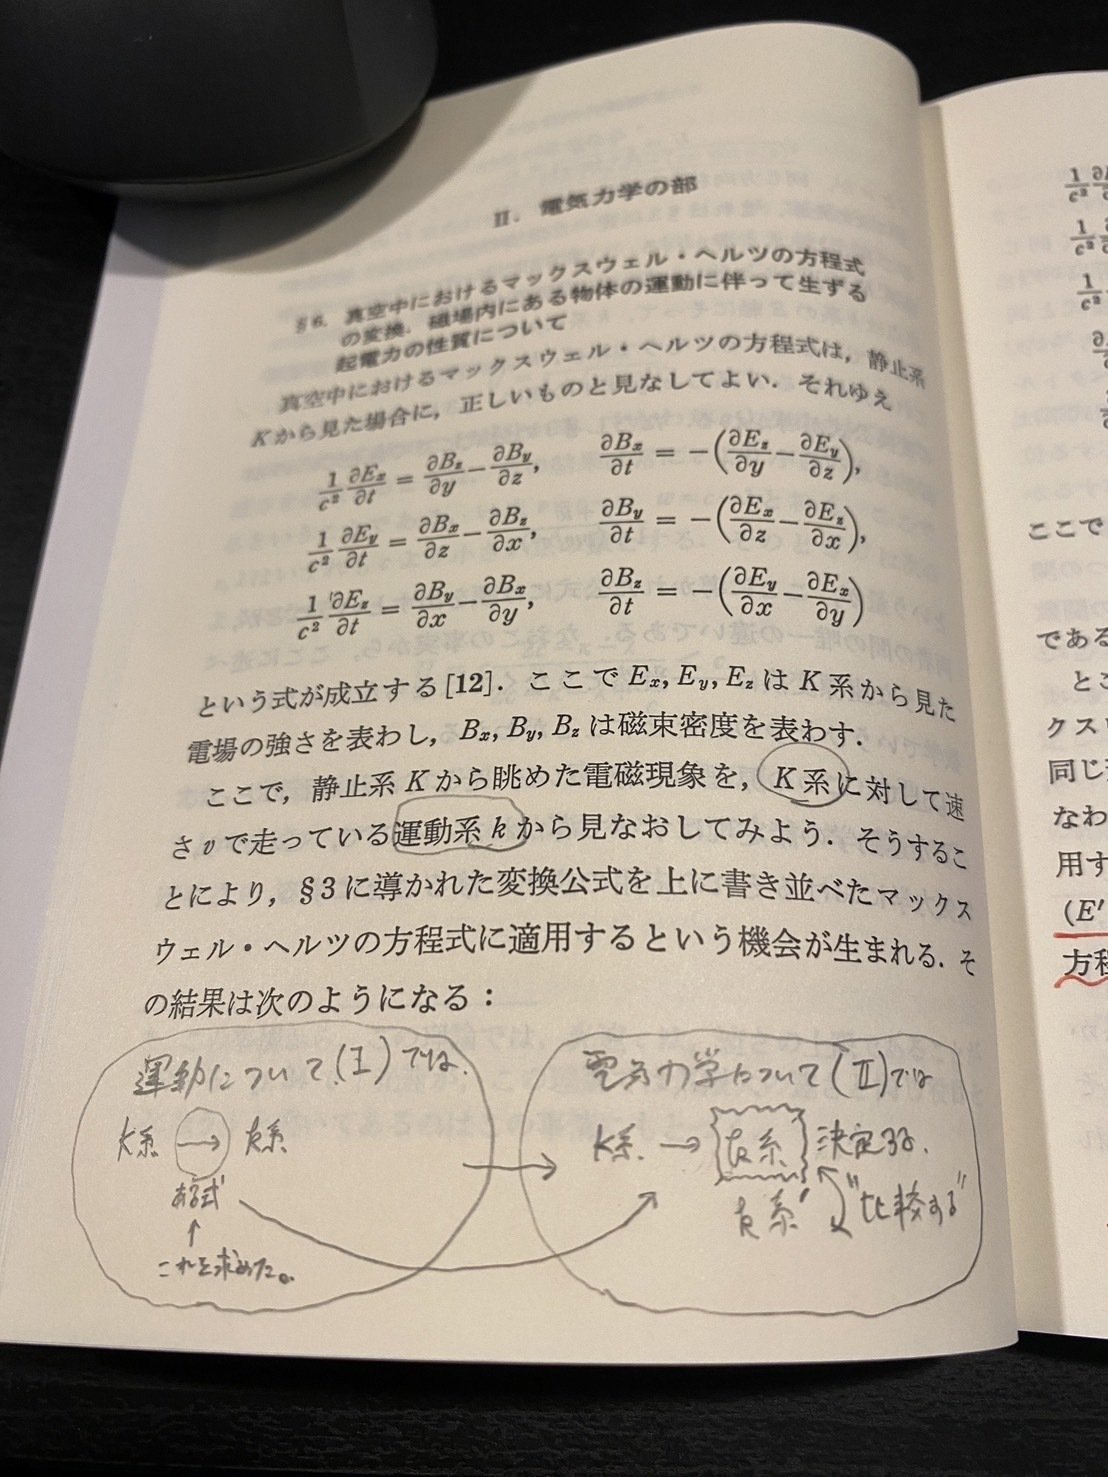 II. 電気力学の部
§6. 真空中におけるマックスウェル・ヘルツの方程式
の変換. 磁場内にある物体の運動に伴って生ずる
起電力の性質について
真空中におけるマックスウェル・ヘルツの方程式は, 静止系
Kから見た場合に, 正しいものと見なしてよい. それゆえ
1/c² ∂Ex/∂t = ∂Bz/∂y − ∂By/∂z, ∂Bx/∂t = −(∂Ez/∂y − ∂Ey/∂z),
1/c² ∂Ey/∂t = ∂Bx/∂z − ∂Bz/∂x, ∂By/∂t = −(∂Ex/∂z − ∂Ez/∂x),
1/c² ∂Ez/∂t = ∂By/∂x − ∂Bx/∂y, ∂Bz/∂t = −(∂Ey/∂x − ∂Ex/∂y)
という式が成立する[12]. ここで Ex, Ey, Ez は K 系から見た
電場の強さを表わし, Bx, By, Bz は磁束密度を表わす.
ここで, 静止系 K から眺めた電磁現象を, K 系に対して速
さ v で走っている運動系 k から見なおしてみよう. そうするこ
とにより, §3 に導かれた変換公式を上に書き並べたマックス
ウェル・ヘルツの方程式に適用するという機会が生まれる. そ
の結果は次のようになる：
運動について(I)では
K系 → k系
ある式
↑
これを求めた。
電気力学について(II)では
K系 → k系 決定する.
k系′ "比較する"
ここで
である
とこ
クス
同じ
なわ
用す
(E′
方程